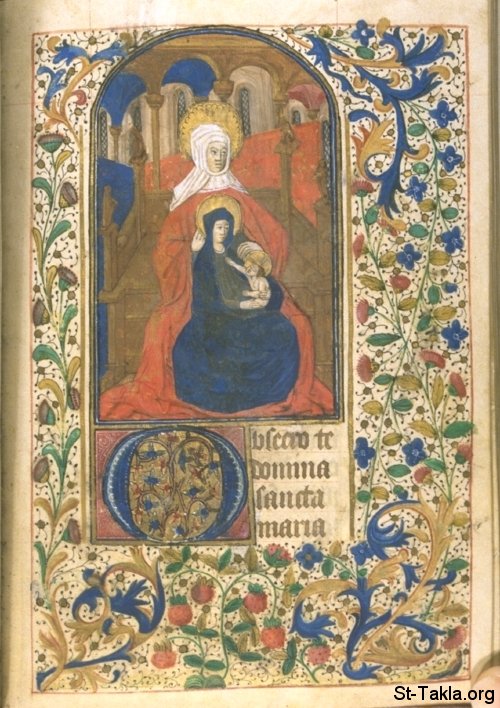 Obsecro te
domina
sancta
maria
St-Takla.org